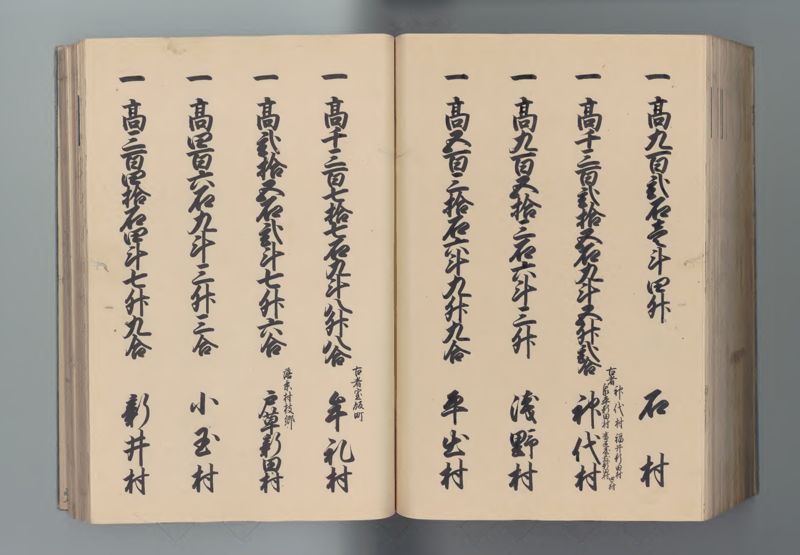 一 高九百弐石壱斗四升 石村
一 高千三百弐拾五石九斗五升弐合 神代村
古者 神代村 福井新田村
一 高九百五拾三石六斗三升 浅野村
一 高五百三拾石六斗九升九合 平出村
一 高千三百七拾七石九斗八升八合 牟礼村
古者室飯町
一 高弐拾五石弐斗七升六合 戸草新田村
落京村枝郷
一 高四百六石九斗三升三合 小玉村
一 高三百四拾石四斗七升九合 新井村